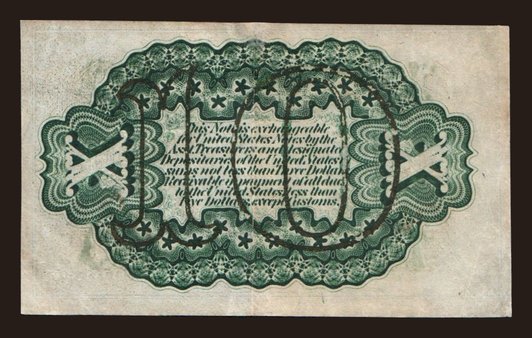 This Note is exchangeable
for United States Notes by the
Ass't Treasurers and designated
Depositaries of the United States
sums not less than Three Dollars
Receivable in payment of all dues
to the United States less than
Five Dollars except Customs.
X 10 X